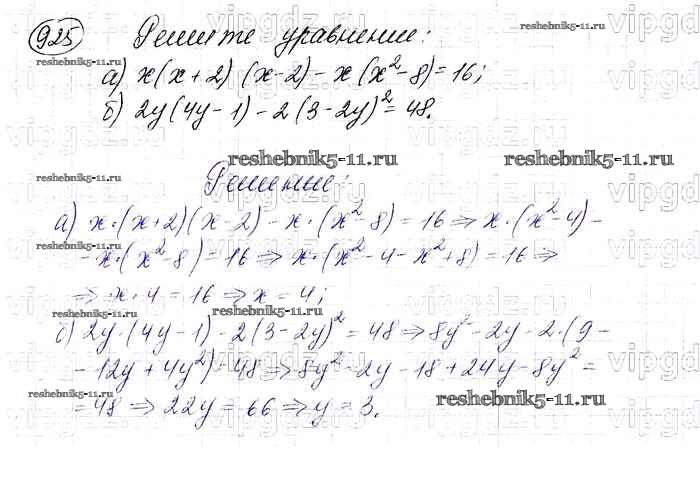 925 Решите уравнение:
reshebnik5-11.ru reshebnik5-11.ru
а) x(x+2)(x-2)-x(x²-8)=16;
б) 2y(4y-1)-2(3-2y)²=48.
reshebnik5-11.ru reshebnik5-11.ru
Решение:
а) x·(x+2)(x-2)-x·(x²-8)=16⇒x·(x²-4)-
reshebnik5-11.ru
-x·(x²-8)=16⇒x·(x²-4-x²+8)=16⇒
⇒x·4=16⇒x=4;
reshebnik5-11.ru
б) 2y·(4y-1)-2(3-2y)²=48⇒8y²-2y-2·(9-
-12y+4y²)=48⇒8y²-2y-18+24y-8y²=
reshebnik5-11.ru reshebnik5-11.ru
=48⇒22y=66⇒y=3.
vipgdz.ru